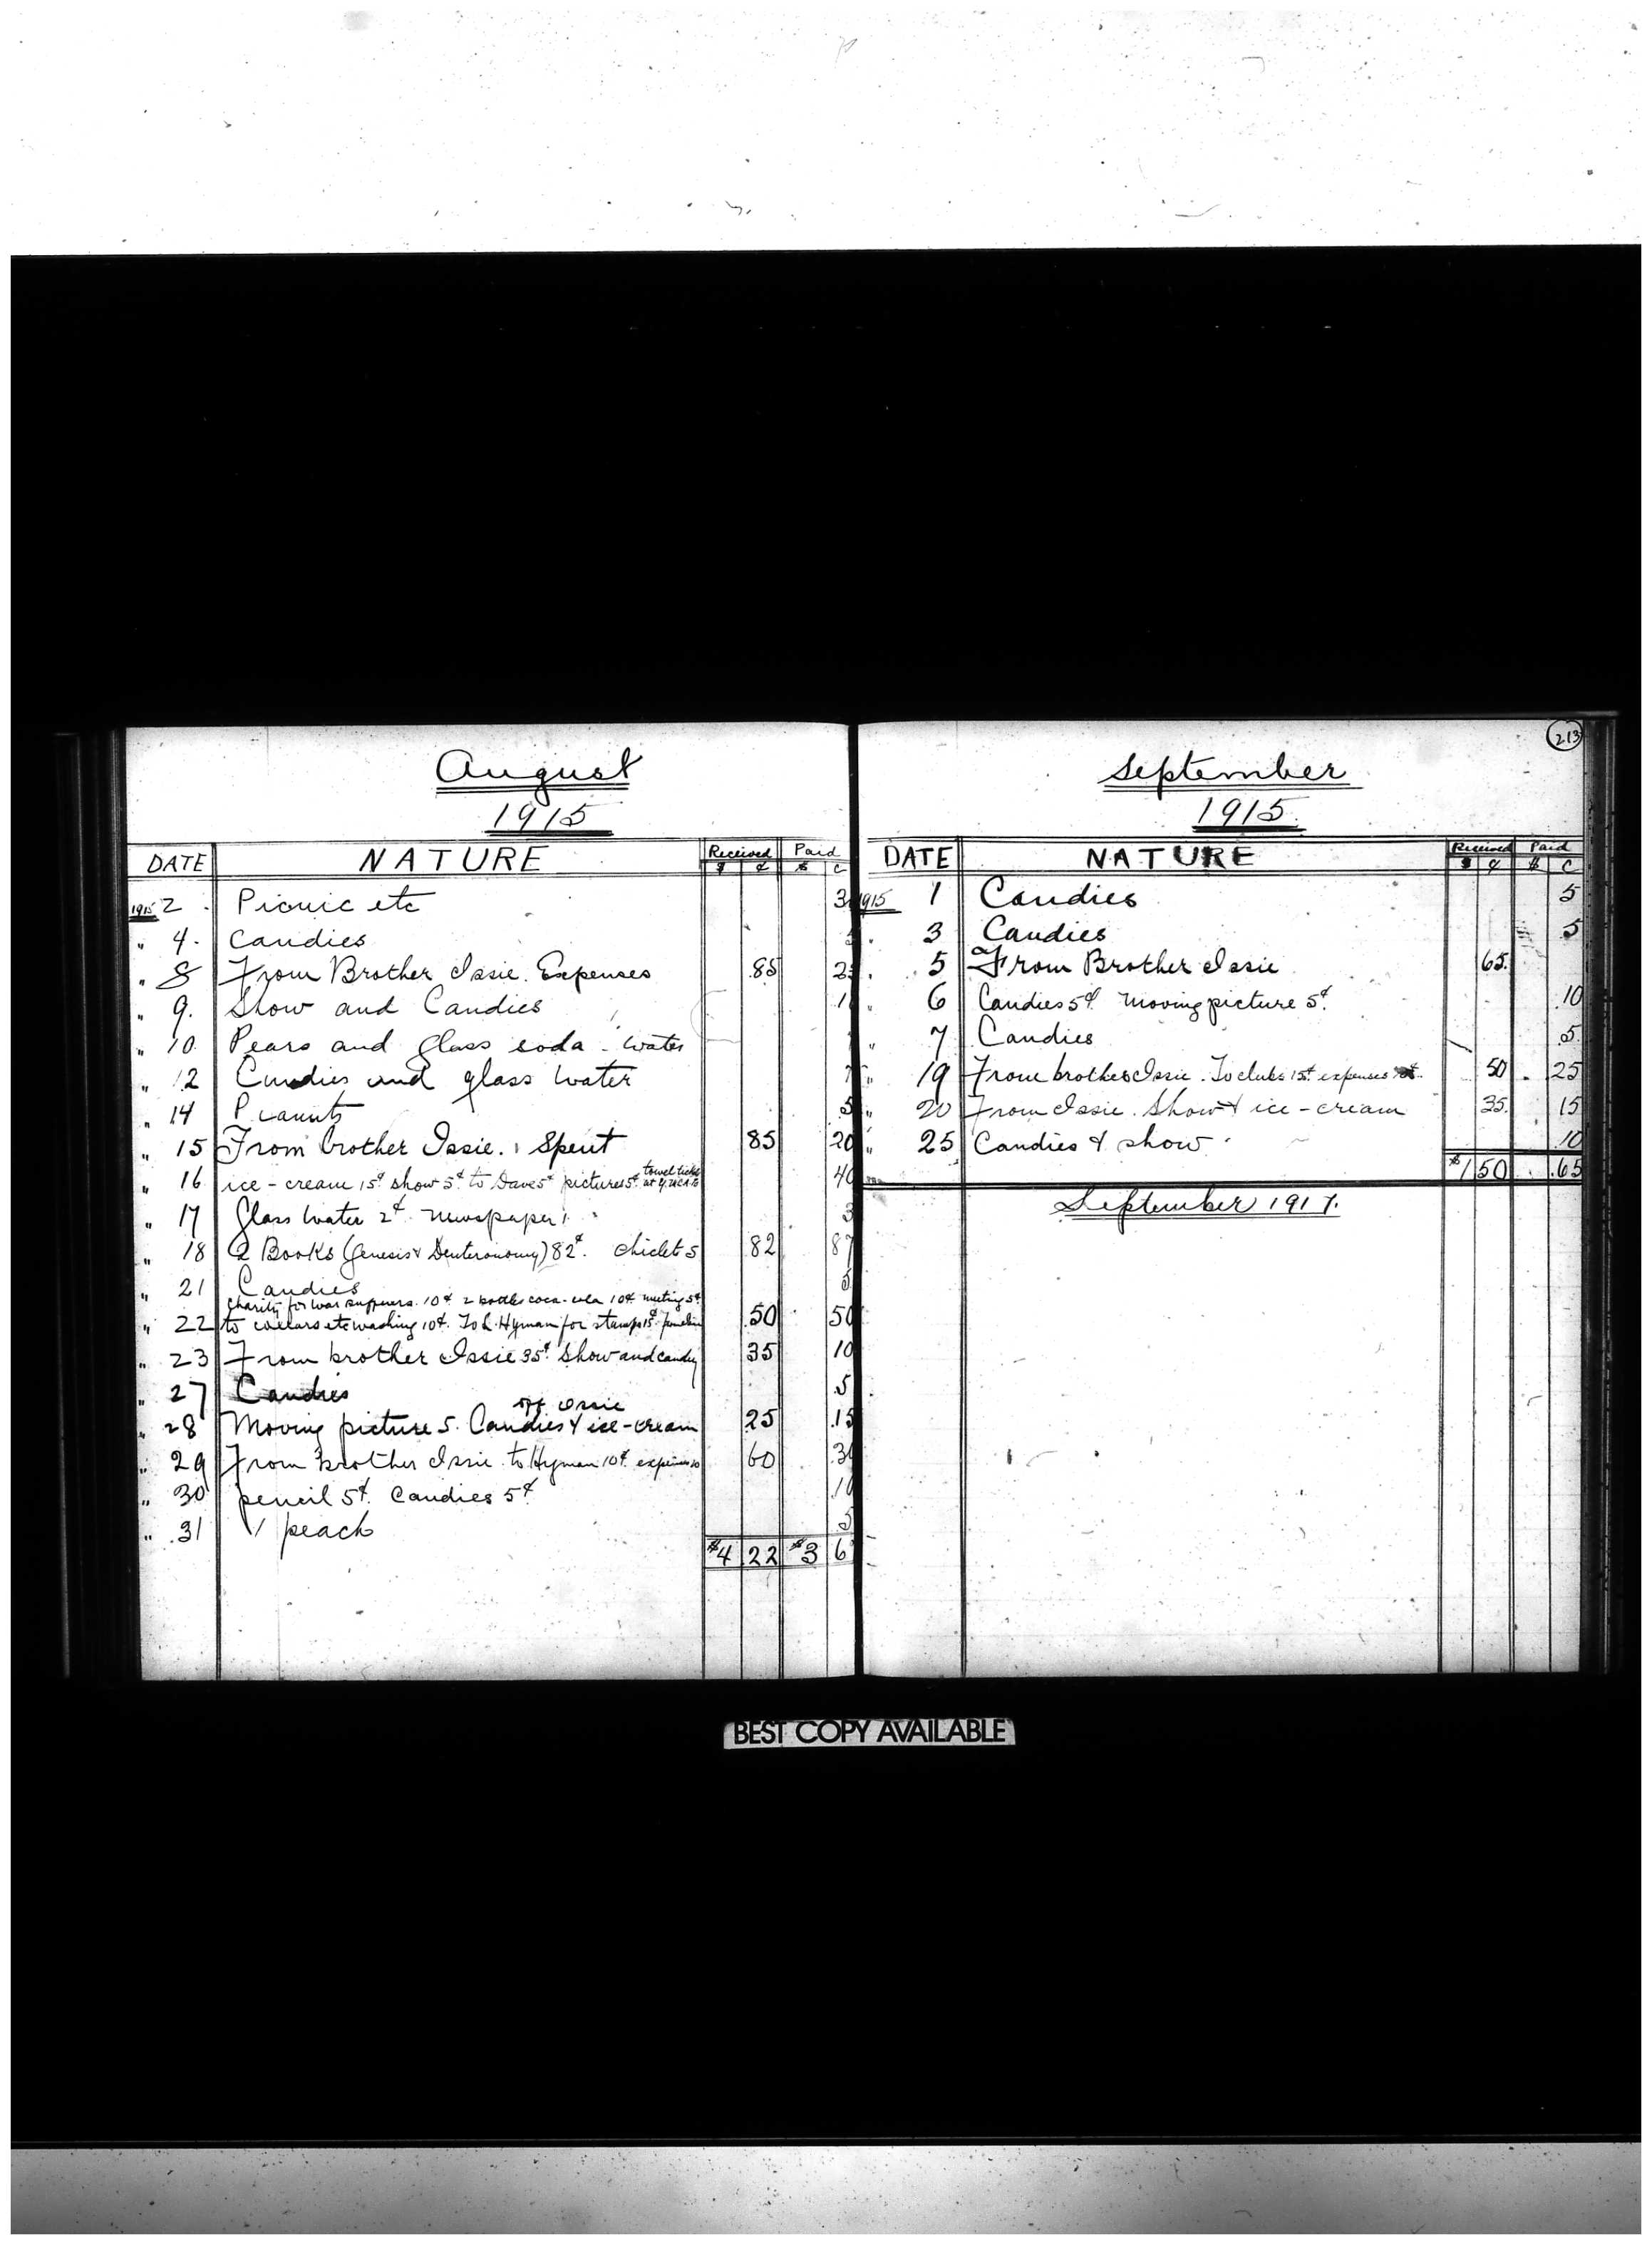 213
August
1915
DATE NATURE Received Paid
$ ¢ $ c
1915 2 Picnic etc 3
" 4. Candies
" 8 From Brother Issie. Expenses .85 2
" 9. Show and Candies 1
" 10 Pears and glass soda-water
" 12 Candies and glass water
" 14 Peanuts 5
" 15 From brother Issie. Spent 85 20
" 16 ice-cream 15¢ show 5¢ to Dave 5¢ pictures 5¢ towel ticket at Y.M.C.A. 10 40
" 17 Glass water 2¢ newspaper 1 3
" 18 2 Books (Genesis & Deuteronomy) 82¢. Chiclet 5 82 87
" 21 Candies 5
Charity for war sufferers. 10¢ 2 bottles coca-cola 10¢ meeting 5¢
" 22 to collars etc washing 10¢. To L. Hyman for stamps 15¢ .50 50
" 23 From brother Issie 35¢ Show and candy 35 10
" 27 Candies .5
off Issie
" 28 Moving picture 5. Candies & ice-cream 25 .15
" 29 From brother Issie to Hyman 10¢ expenses 60 .3
" 30 pencil 5¢. Candies 5¢ .10
" 31 1 peach 5
$4 22 $3 6
September
1915.
DATE NATURE Received Paid
$ ¢ $ c
1915 1 Candies 5
" 3 Candies .5
" 5 From Brother Issie 65.
" 6 Candies 5¢ Moving picture 5¢. .10
" 7 Candies .5
" 19 From brother Issie. To clubs 15¢ expenses 50 . 25
" 20 From Issie. Show & ice-cream 35. 15
" 25 Candies & show .10
$1 50 .65
September 1917.
BEST COPY AVAILABLE